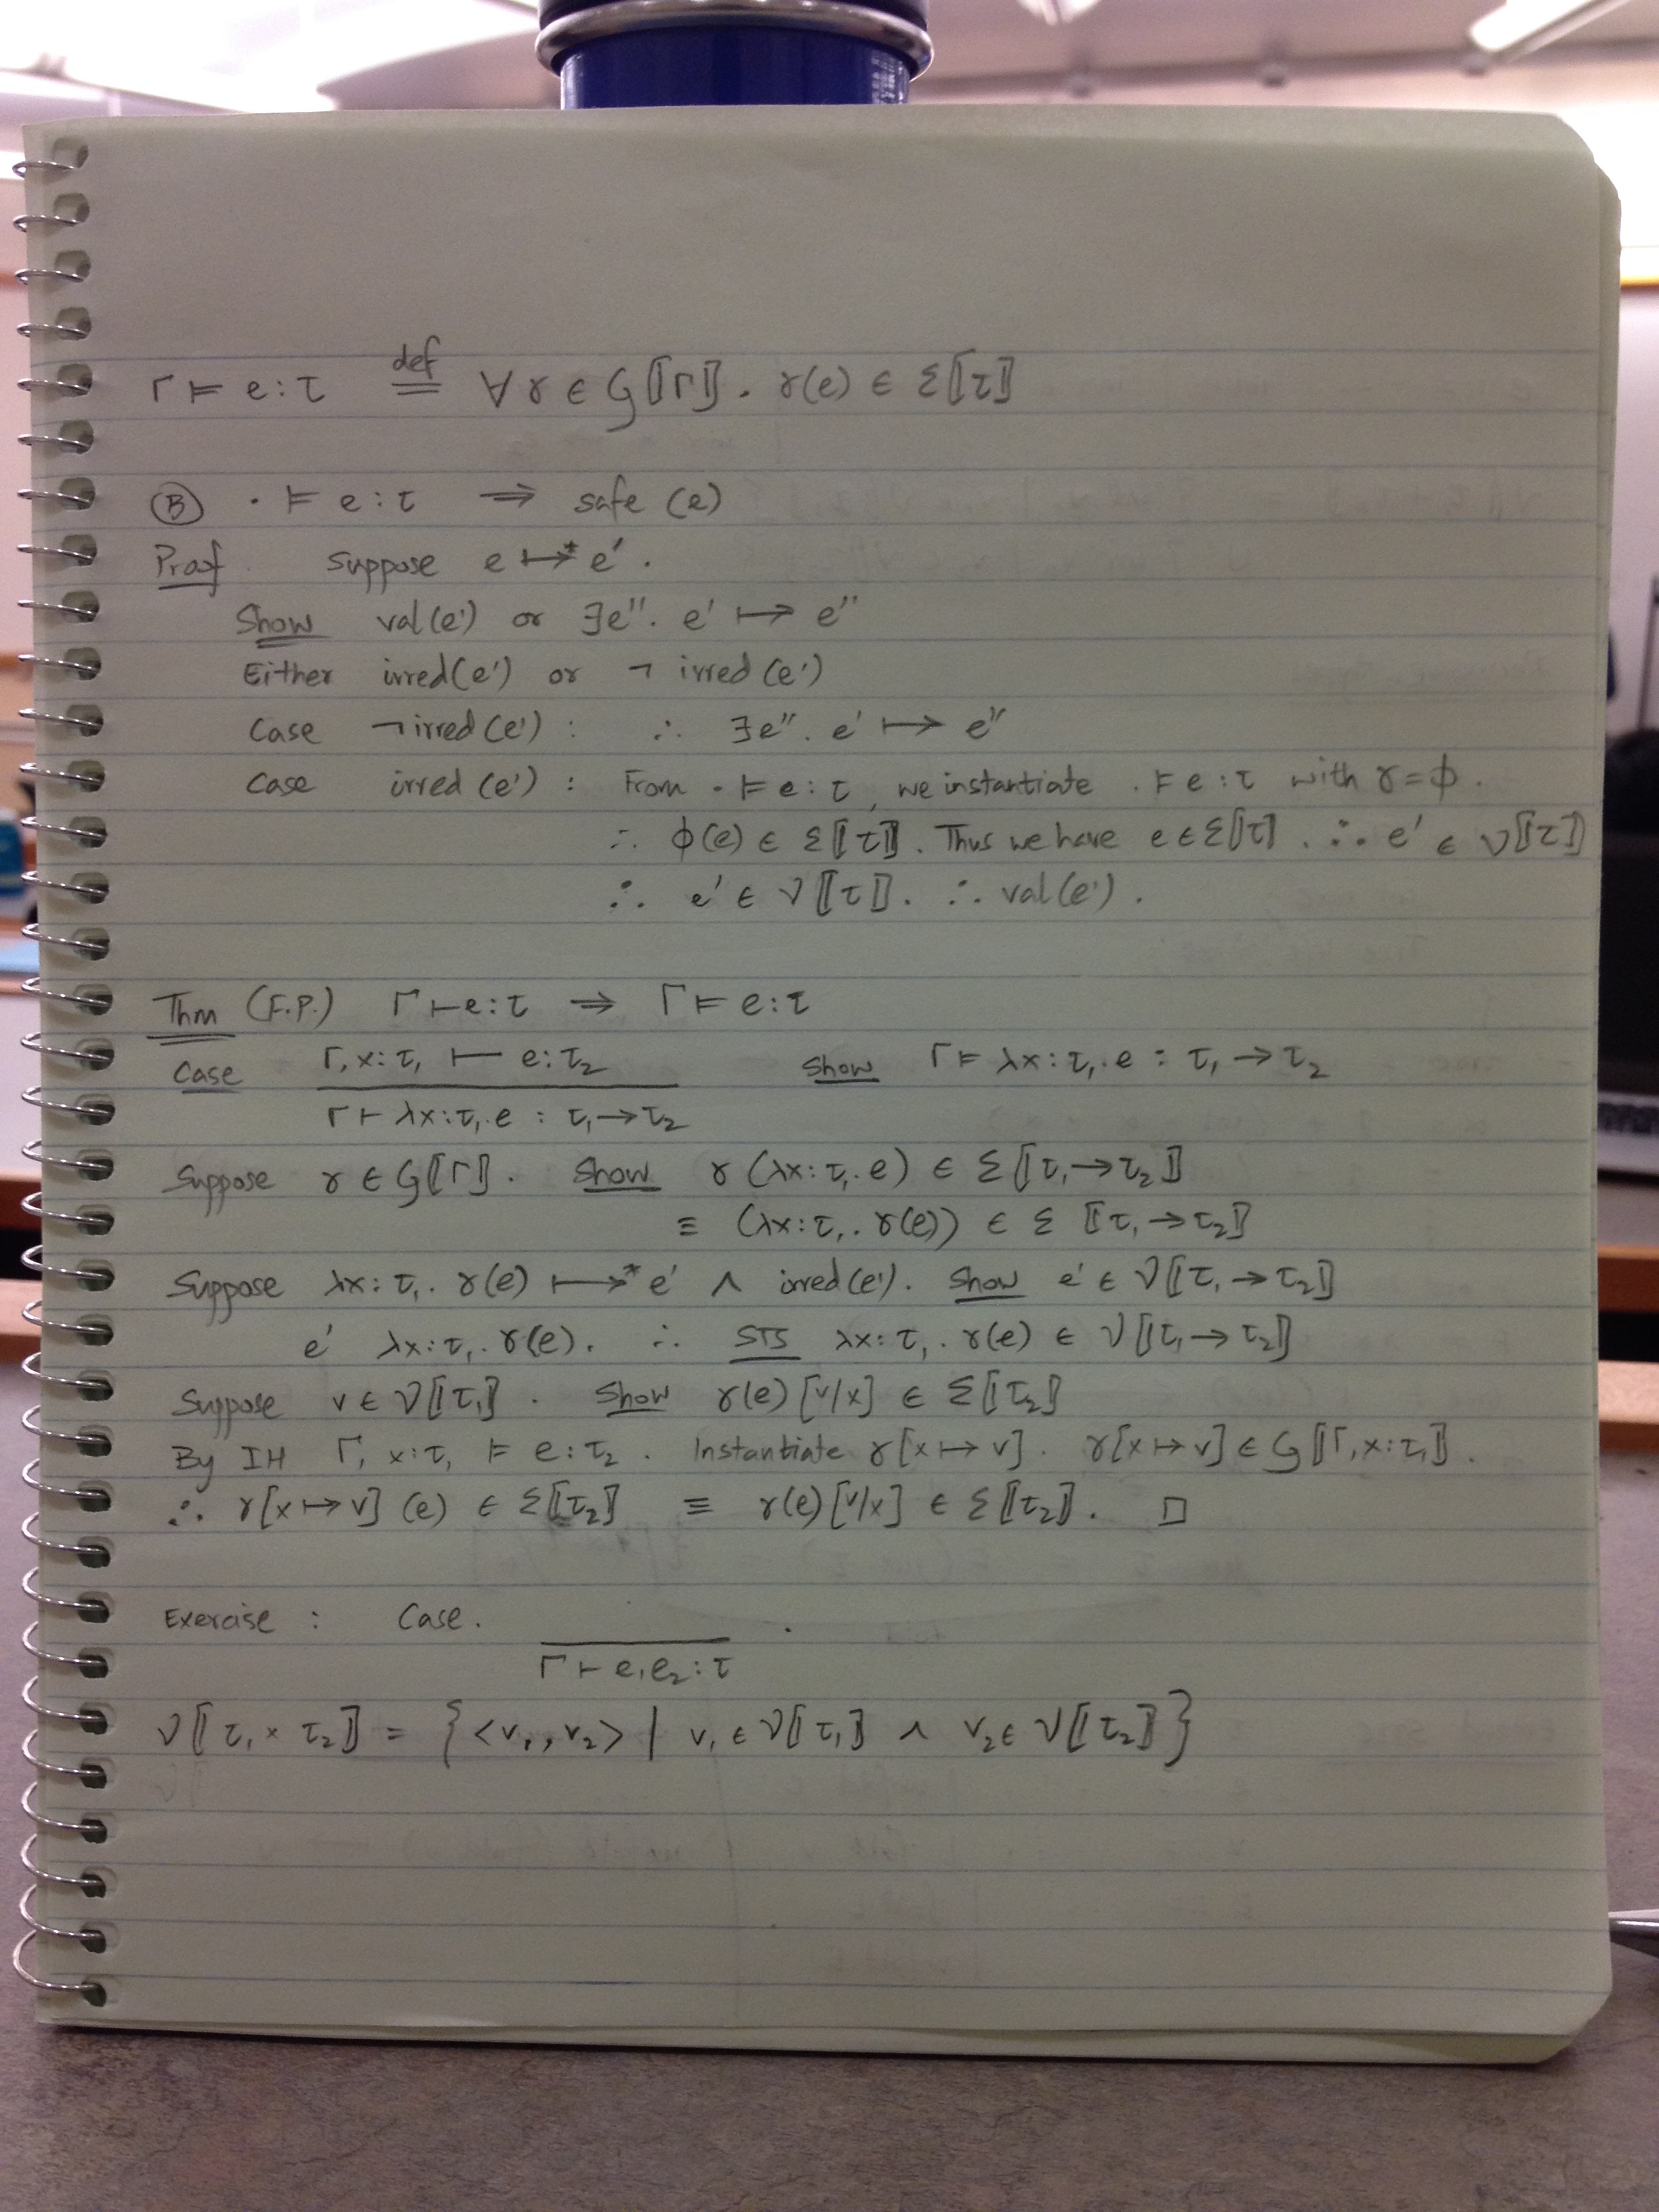 Γ ⊨ e : τ ≝ ∀ γ ∈ G⟦Γ⟧ . γ(e) ∈ Ɛ⟦τ⟧
Ⓑ · ⊨ e : τ ⟹ safe (e)
Proof. Suppose e ↦* e' .
Show val(e') or ∃e''. e' ↦ e''
Either irred(e') or ¬ irred (e')
Case ¬irred(e') : ∴ ∃e''. e' ↦ e''
Case irred (e') : From · ⊨ e : τ , we instantiate · ⊨ e : τ with γ = φ .
∴ φ(e) ∈ Ɛ⟦τ⟧ . Thus we have e ∈ Ɛ⟦τ⟧ . ∴ e' ∈ V⟦τ⟧
∴ e' ∈ V⟦τ⟧ . ∴ val(e') .
Thm (F.P.) Γ ⊢ e : τ ⟹ Γ ⊨ e : τ
Case Γ, x : τ₁ ⊢ e : τ₂ Show Γ ⊨ λx : τ₁. e : τ₁ → τ₂
Γ ⊢ λx : τ₁. e : τ₁ → τ₂
Suppose γ ∈ G⟦Γ⟧ . Show γ (λx : τ₁. e) ∈ Ɛ⟦τ₁ → τ₂⟧
≡ (λx : τ₁. γ(e)) ∈ Ɛ ⟦τ₁ → τ₂⟧
Suppose λx : τ₁. γ(e) ↦* e' ∧ irred(e'). Show e' ∈ V⟦τ₁ → τ₂⟧
e' λx : τ₁. γ(e). ∴ STS λx : τ₁. γ(e) ∈ V⟦τ₁ → τ₂⟧
Suppose v ∈ V⟦τ₁⟧ . Show γ(e) [v/x] ∈ Ɛ⟦τ₂⟧
By IH Γ, x : τ₁ ⊨ e : τ₂ . Instantiate γ[x ↦ v] . γ[x ↦ v] ∈ G⟦Γ, x : τ₁⟧ .
∴ γ[x ↦ v] (e) ∈ Ɛ⟦τ₂⟧ ≡ γ(e) [v/x] ∈ Ɛ⟦τ₂⟧ . □
Exercise : Case. .
Γ ⊢ e₁e₂ : τ
V⟦τ₁ × τ₂⟧ = { <v₁, v₂> | v₁ ∈ V⟦τ₁⟧ ∧ v₂ ∈ V⟦τ₂⟧ }